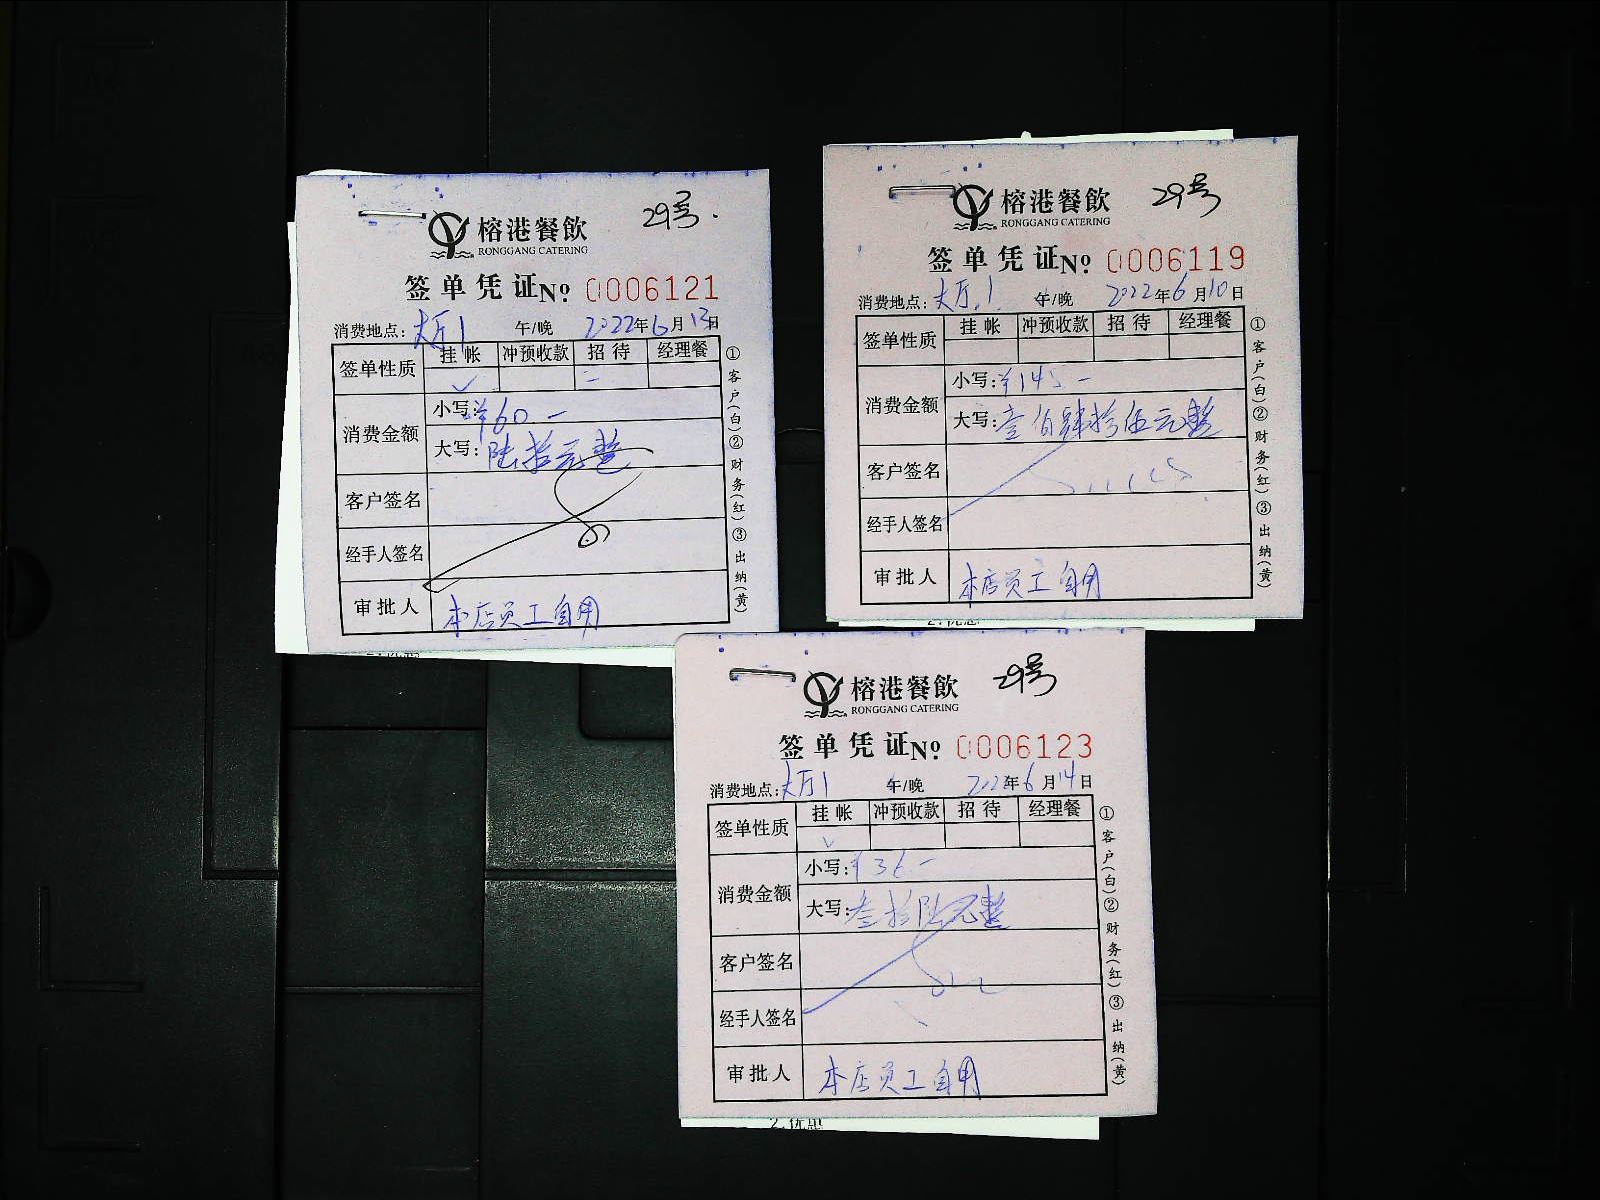 29号.
榕港餐飲
RONGGANG CATERING
签单凭证№ 0006121
消费地点: 大厅1 午/晚 2022年6月13日
签单性质 挂帐 冲预收款 招待 经理餐
消费金额 小写: ¥60 —
大写: 陆拾元整
客户签名
经手人签名
审批人 本店员工自用
①客户(白)②财务(红)③出纳(黄)
29号
榕港餐飲
RONGGANG CATERING
签单凭证№ 0006119
消费地点: 大厅.1 午/晚 2022年6月10日
签单性质 挂帐 冲预收款 招待 经理餐
消费金额 小写: ¥145 —
大写: 壹佰肆拾伍元整
客户签名
经手人签名
审批人 本店员工自用
①客户(白)②财务(红)③出纳(黄)
29号
榕港餐飲
RONGGANG CATERING
签单凭证№ 0006123
消费地点: 大厅1 午/晚 2022年6月14日
签单性质 挂帐 冲预收款 招待 经理餐
消费金额 小写: ¥36 —
大写: 叁拾陆元整
客户签名
经手人签名
审批人 本店员工自用
①客户(白)②财务(红)③出纳(黄)
2.优惠